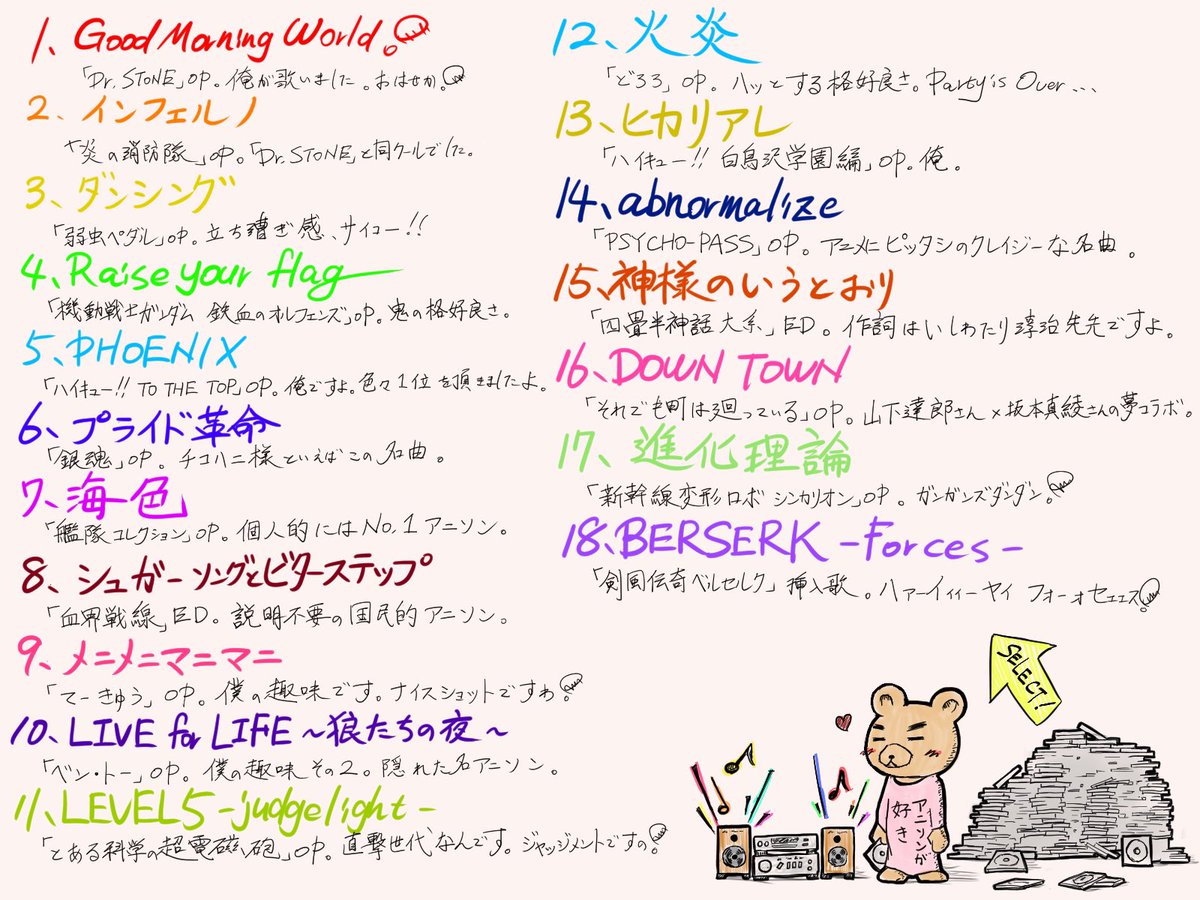 1、Good Morning World!
「Dr.STONE」OP。俺が歌いました。おはせか!
2、インフェルノ
「炎の消防隊」OP。「Dr.STONE」と同クールでした。
3、ダンシング
「弱虫ペダル」OP。立ち漕ぎ感、サイコー!!
4、Raise your flag
「機動戦士ガンダム 鉄血のオルフェンズ」OP。鬼の格好良さ。
5、PHOENIX
「ハイキュー!! TO THE TOP」OP。俺ですよ。色々1位を頂きましたよ。
6、プライド革命
「銀魂」OP。チコハニ様といえばこの名曲。
7、海色
「艦隊コレクション」OP。個人的にはNo.1アニソン。
8、シュガーソングとビターステップ
「血界戦線」ED。説明不要の国民的アニソン。
9、メニメニマニマニ
「てーきゅう」OP。僕の趣味です。ナイスショットですわ!
10、LIVE for LIFE~狼たちの夜~
「ベン・トー」OP。僕の趣味その2。隠れた名アニソン。
11、LEVEL5-judgelight-
「とある科学の超電磁砲」OP。直撃世代なんです。ジャッジメントですの!
12、火炎
「どろろ」OP。ハッとする格好良さ。Party is Over...
13、ヒカリアレ
「ハイキュー!! 白鳥沢学園編」OP。俺。
14、abnormalize
「PSYCHO-PASS」OP。アニメにピッタシのクレイジーな名曲。
15、神様のいうとおり
「四畳半神話大系」ED。作詞はいしわたり淳治先生ですよ。
16、DOWN TOWN
「それでも町は廻っている」OP。山下達郎さん×坂本真綾さんの夢コラボ。
17、進化理論
「新幹線変形ロボ シンカリオン」OP。ガンガンズダンダン!
18、BERSERK -Forces-
「剣風伝奇ベルセルク」挿入歌。ハァーイィィーヤイ フォーォセェェス!
SELECT!
アニソンが
好き